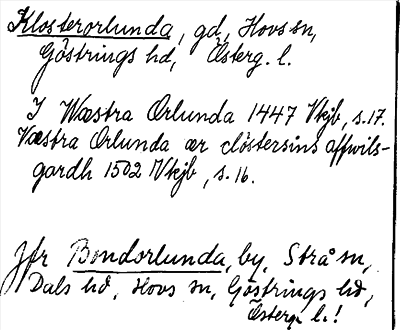 Klosterorlunda, gd, Hovs sn,
Göstrings hd, Österg. l.
I Wæstra Orlunda 1447 Vkjb, s.17.
Væstra Orlunda ær clöstersins affwils-
gardh 1502 Vkjb, s.16.
Jfr Bondorlunda, by, Strå sn,
Dals hd, Hovs sn, Göstrings hd,
Österg. l.!